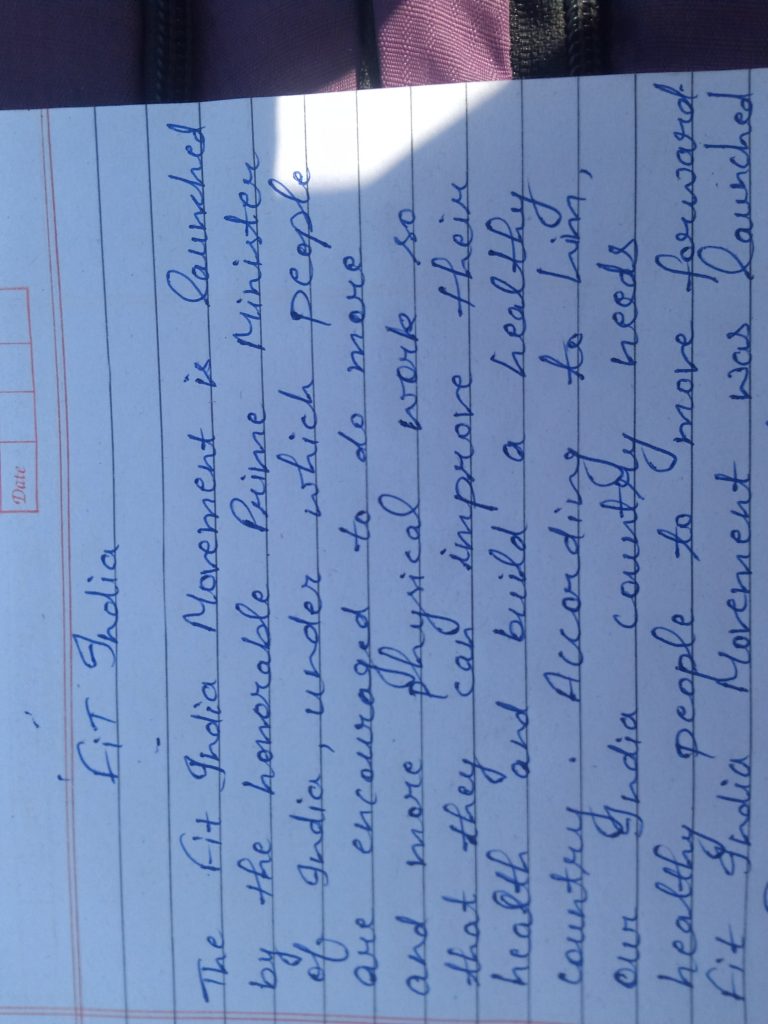 Date
Fit India
The Fit India Movement is launched
by the honorable Prime Minister
of India, under which people
are encouraged to do more
and more physical work so
that they can improve their
health and build a healthy
country. According to him,
our India country needs
healthy people to move forward.
Fit India Movement was launched